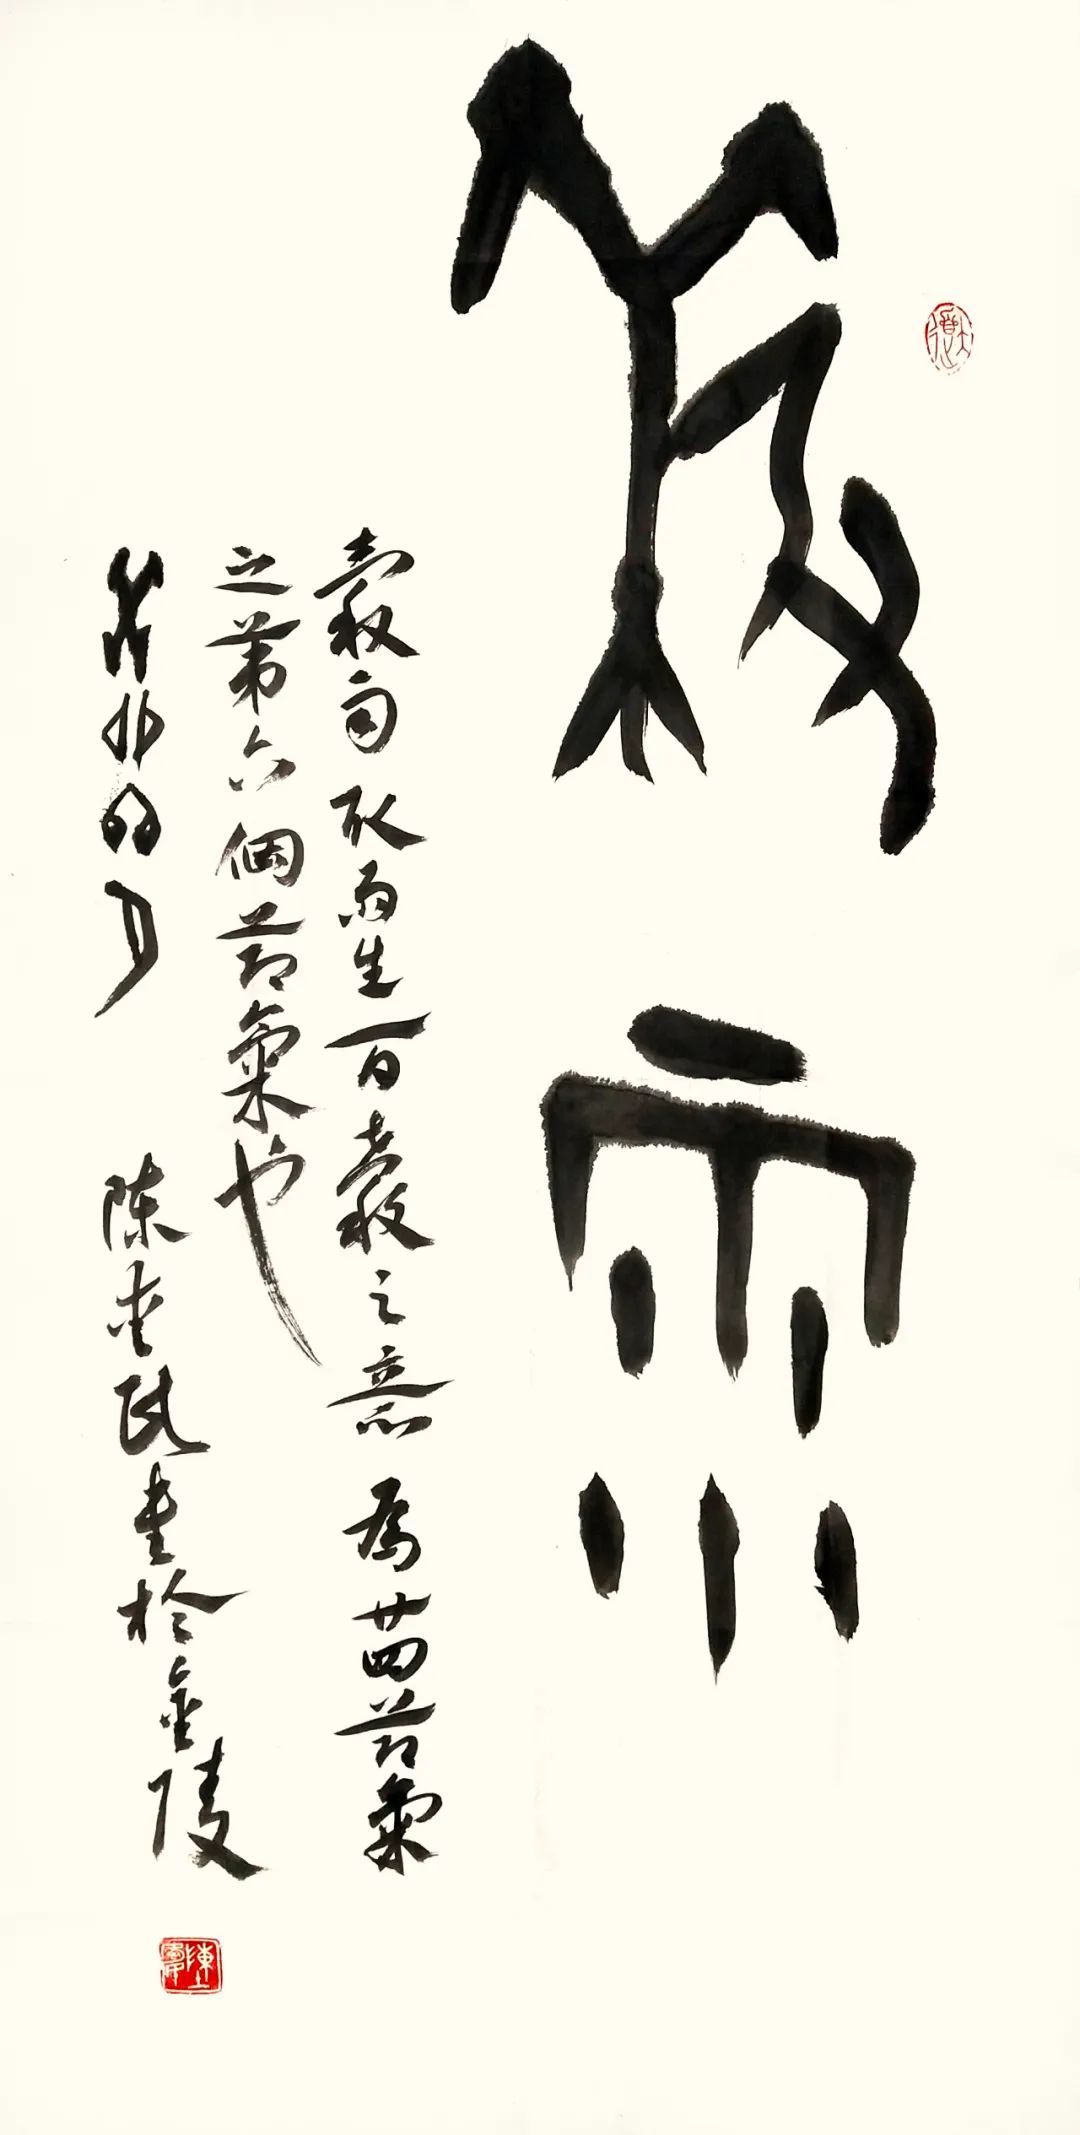 穀雨
穀雨取雨生百穀之意 為廿四節氣
之第六個節氣也
卯 月 陳 書於金陵